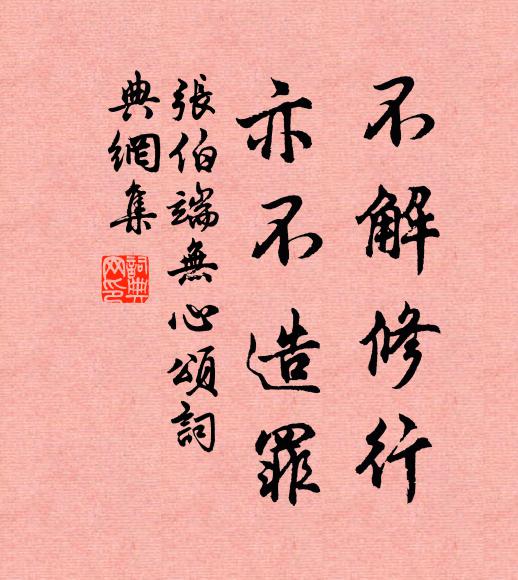 不解修行
亦不造罪
張伯端無心頌詞
典網集
詞典網印